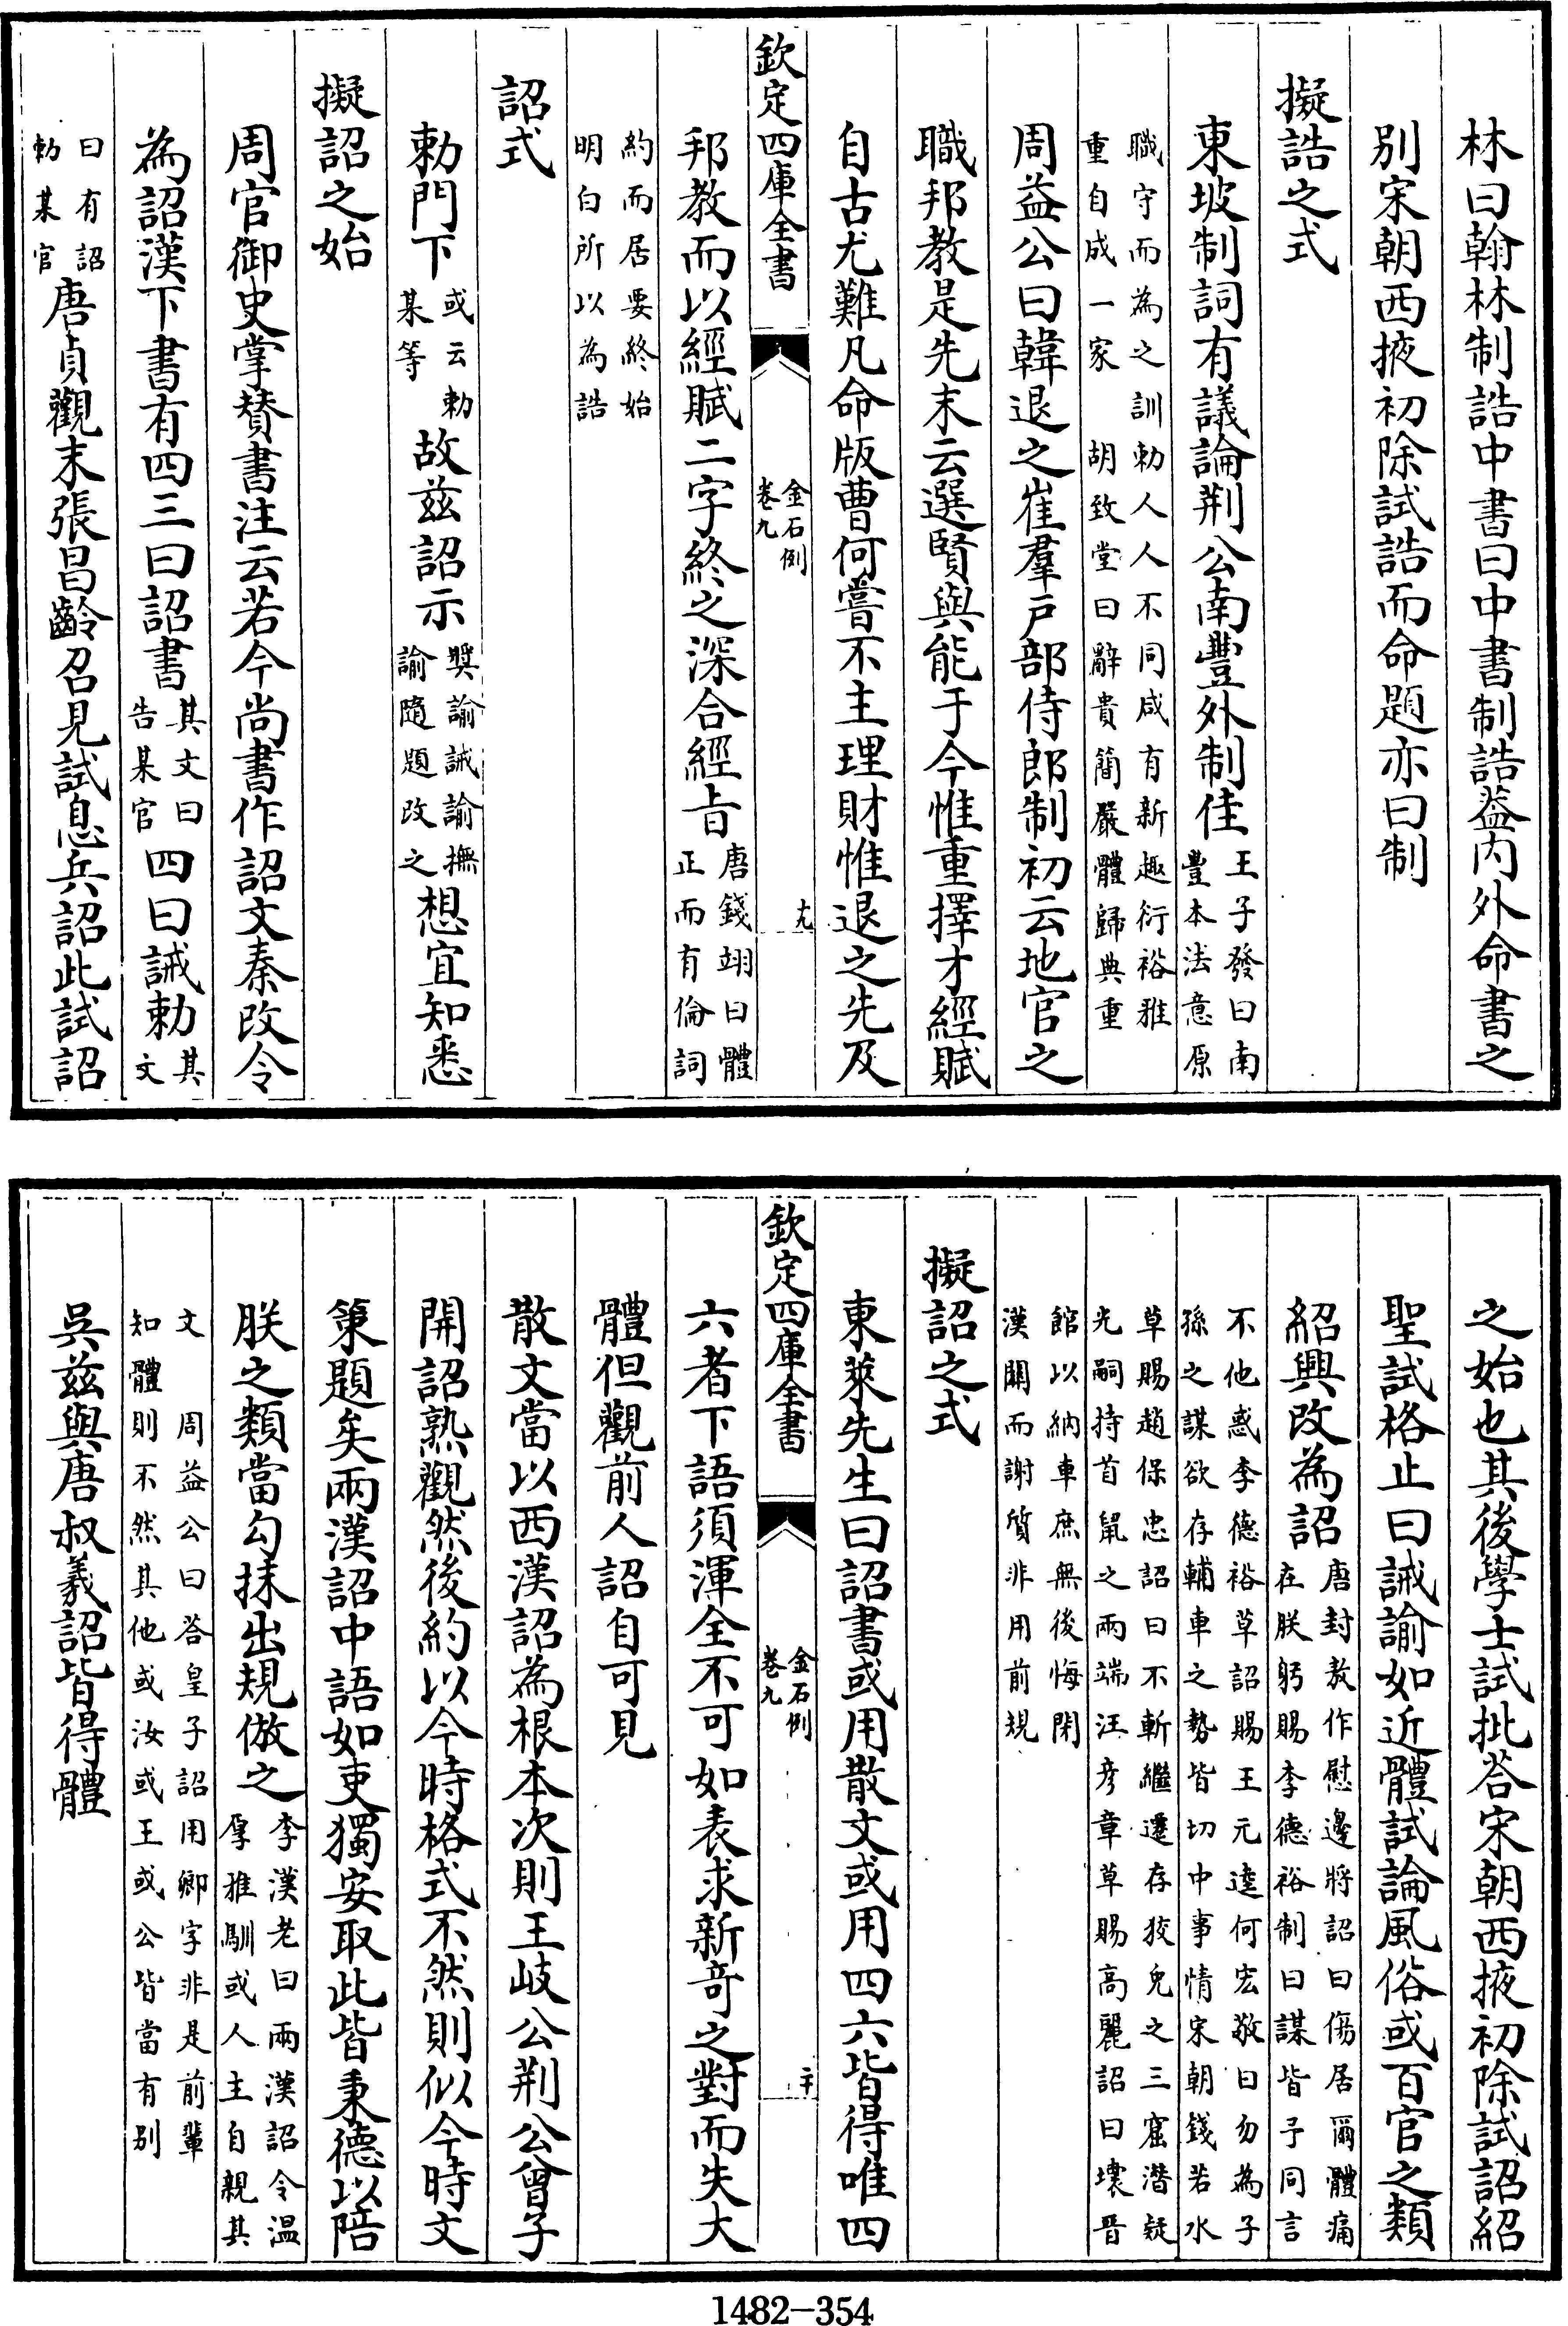 林曰翰林制誥中書曰中書制誥葢内外命書之
别宋朝西掖初除試誥而命題亦曰制
擬誥之式
東坡制詞有議論荆公南豐外制佳王子發曰南豐本法意原
職守而為之訓勅人人不同咸有新趣衍裕雅重自成一家　胡致堂曰辭貴簡嚴體歸典重
周益公曰韓退之崔羣戸部侍郎制初云地官之
職邦教是先末云選賢與能于今惟重擇才經賦
自古尤難凡命版曹何嘗不主理財惟退之先及
欽定四庫全書
金石例
卷九
十九
邦教而以經賦二字終之深合經㫖唐錢翊曰體正而有倫詞
約而居要終始明白所以為誥
詔式
勅門下或云勅某等故兹詔示奬諭誡諭撫諭隨題改之想宜知悉
擬詔之始
周官御史掌賛書注云若今尚書作詔文秦改令
為詔漢下書有四三曰詔書其文曰告某官四曰誡勅其文
曰有詔勅某官唐貞觀末張昌齡召見試息兵詔此試詔
之始也其後學士試批荅宋朝西掖初除試詔紹
聖試格止曰誡諭如近體試論風俗或百官之類
紹興改為詔唐封敖作慰邊將詔曰傷居爾體痛在朕躬賜李德裕制曰謀皆予同言
不他惑李德裕草詔賜王元逵何宏敬曰勿為子孫之謀欲存輔車之勢皆切中事情宋朝錢若水
草賜趙保忠詔曰不斬繼遷存狡兔之三窟潜疑光嗣持首鼠之兩端汪彦章草賜高麗詔曰壞晉
館以納車庶無後悔閉漢關而謝質非用前規
擬詔之式
東萊先生曰詔書或用散文或用四六皆得唯四
欽定四庫全書
金石例
卷九
二十
六者下語須渾全不可如表求新奇之對而失大
體但觀前人詔自可見
散文當以西漢詔為根本次則王岐公荆公曾子
開詔熟觀然後約以今時格式不然則似今時文
䇿題矣兩漢詔中語如吏獨安取此皆秉德以陪
朕之類當勾抹出規倣之李漢老曰兩漢詔令温厚雅馴或人主自親其
文　周益公曰荅皇子詔用卿字非是前輩知體則不然其他或汝或王或公皆當有别
吳兹與唐叔義詔皆得體
1482-354